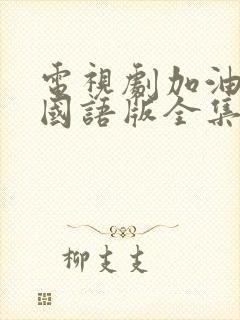 電視劇加油
國語版全集
柳支支